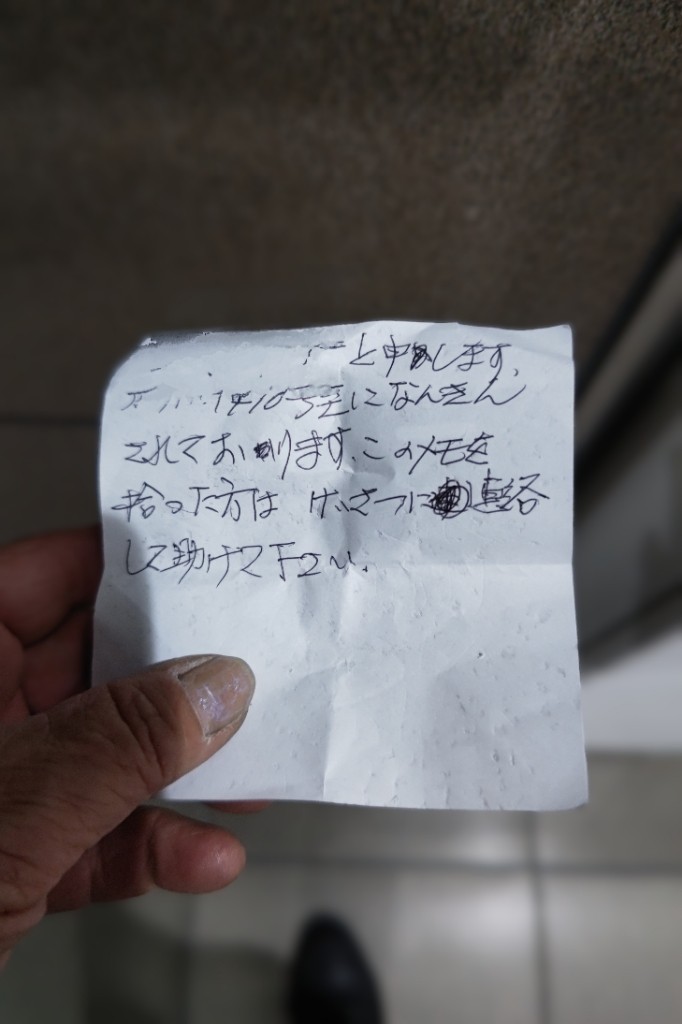 と申します。
号室になんきん
されております。このメモを
拾った方は けいさつに連絡
して助けて下さい。